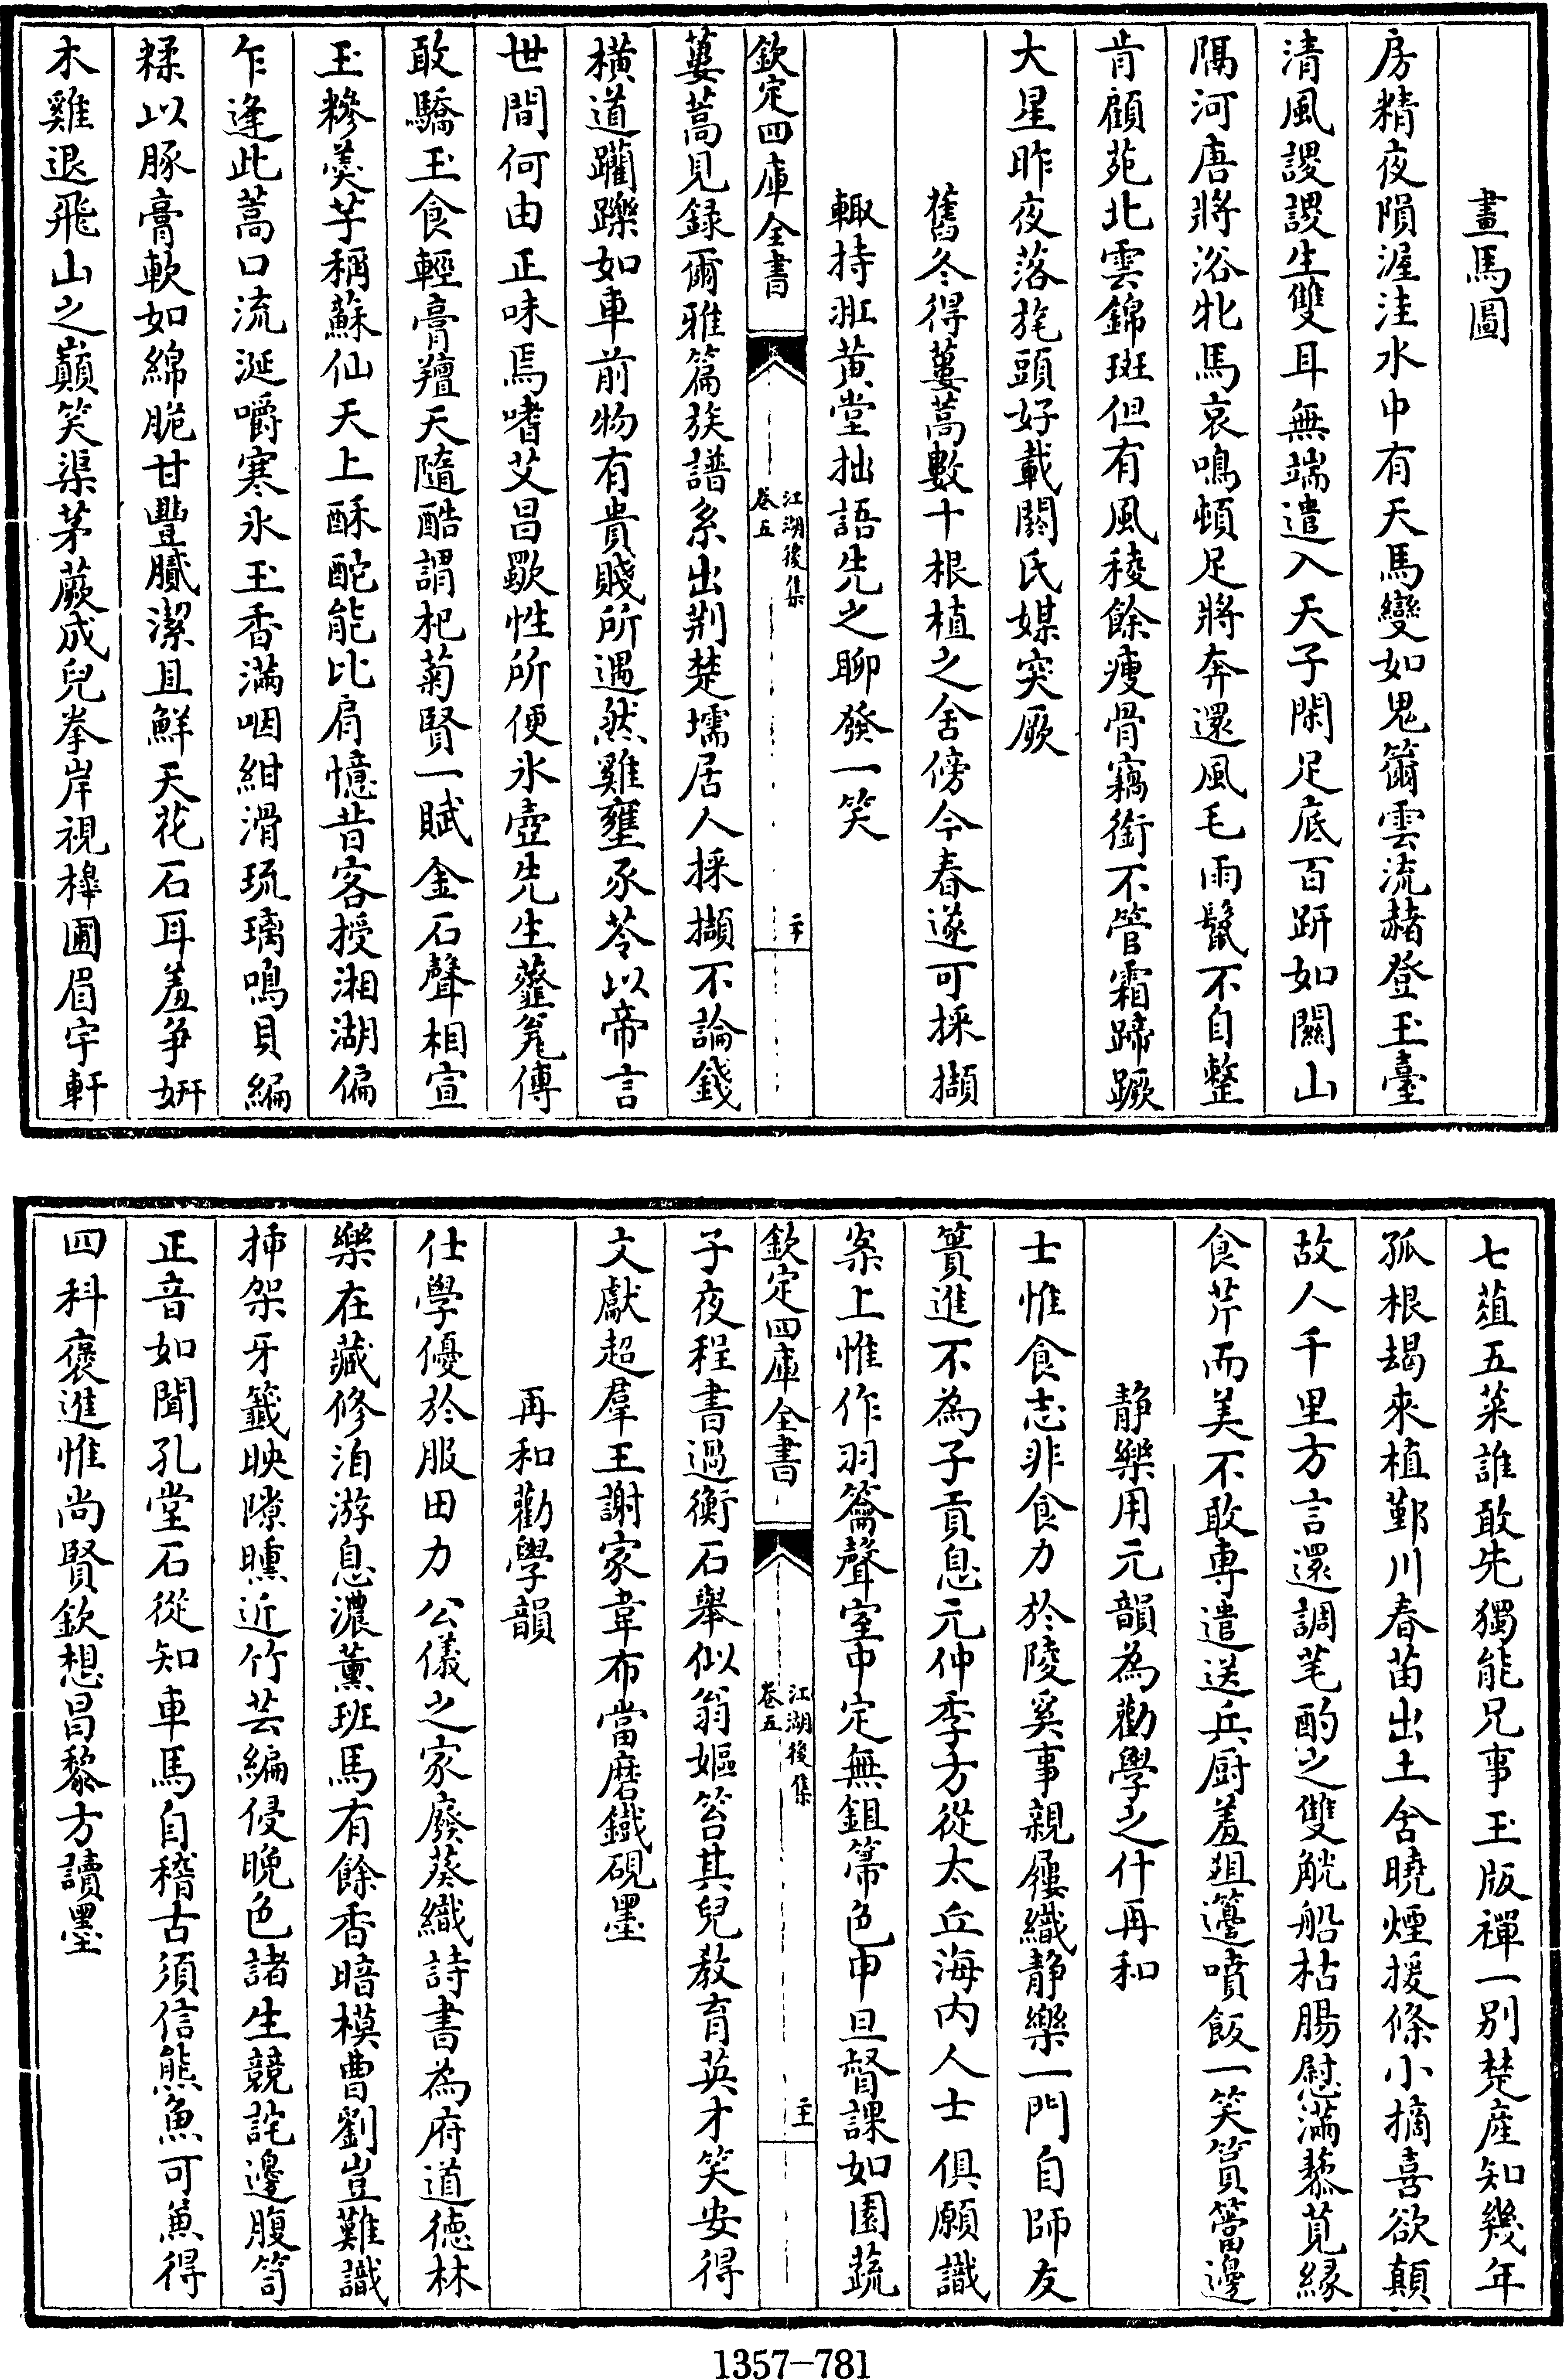 畫馬圖
房精夜隕渥洼水中有天馬變如鬼籋雲流赭登玉臺
清風謖謖生雙耳無端遣入天子閑足底百趼如關山
隔河唐將浴牝馬哀鳴頓足將奔還風毛雨鬛不自整
肯顧苑北雲錦斑但有風稜餘瘦骨竊銜不管霜蹄蹶
大星昨夜落旄頭好載閼氏媒突厥
舊冬得蔞蒿數十根植之舍傍今春遂可採擷
輙持誑黄堂拙語先之聊發一笑
欽定四庫全書
江湖後集
卷五
二十
蔞蒿見録爾雅篇族譜系出荆楚壖居人採擷不論錢
橫道躪躒如車前物有貴賤所遇然雞壅豕苓以帝言
世間何由正味焉嗜艾昌歜性所便氷壺先生虀瓮傳
敢驕玉食輕膏羶天隨酷謂杞菊賢一賦金石聲相宣
玉糝羮芋稱蘇仙天上酥酡能比肩憶昔客授湘湖偏
乍逢此蒿口流涎嚼寒氷玉香滿咽紺滑琉璃鳴貝編
糅以豚膏軟如綿脆甘豐膩潔且鮮天花石耳羞爭妍
木雞退飛山之巔笑渠茅蕨成兒拳岸視樺圃眉宇軒
七葅五菜誰敢先獨能兄事玉版禪一别楚産知幾年
孤根朅來植鄞川春苗出土舍曉煙援條小摘喜欲顛
故人千里方言還調芼酌之雙觥船枯腸慰滿藜莧縁
食芹而美不敢專遣送兵厨羞爼籩噴飯一笑篔簹邊
静樂用元韻為勸學之什再和
士惟食志非食力於陵奚事親屨織静樂一門自師友
簣進不為子貢息元仲季方從太丘海内人士俱願識
案上惟作羽籥聲室中定無鉏箒色申旦督課如園蔬
欽定四庫全書
江湖後集
卷五
二十一
子夜程書過衡石舉似翁嫗笞其兒教育英才笑安得
文獻超羣王謝家韋布當磨鐡硯墨
再和勸學韻
仕學優於服田力公儀之家廢葵織詩書為府道德林
樂在藏修洎游息濃薫班馬有餘香暗模曹劉豈難識
揷架牙籤映隙曛近竹芸編侵晚色諸生競詫邊腹笥
正音如聞孔堂石從知車馬自稽古須信熊魚可兼得
四科褒進惟尚賢欽想昌黎方讀墨
1357-781